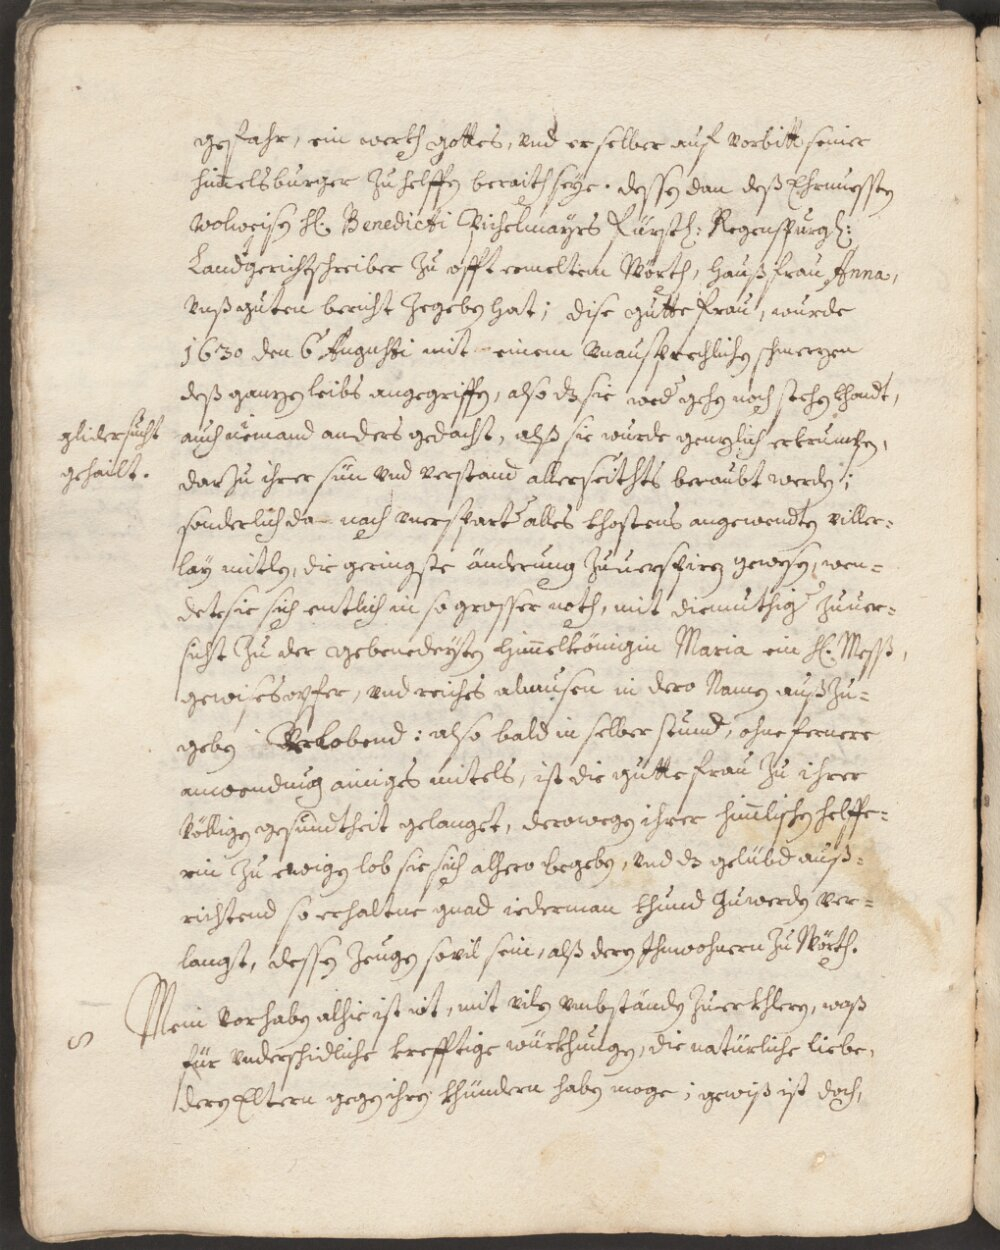 gesfahr, ein werkh gottes, vnd er selber auf vorbitt seiner
himelsburger zuhelffen beraith seye. dessen dan deß Ehrnuessten
wolweisen H. Benedicti Eichelmayrs Fürstl: Regenspurgl:
Landgerichtschreiber zu offt ermeltem Wörth, haußfrau Anna,
vnß guten bericht gegeben hat; dise gutte frau, wurde
1630 den 6 Augusti mit einem vnaussprechlichen schmerzen
deß ganzen leibs angegriffen, also dz sie weder gehen noch stehen khondt,
auch niemand anders gedacht, alß sie wurde genzlich erkrumpen,
glidersucht
gehailt.
darzu ihrer sün vnd verstand allerseithts beraubt werden;
sonderlich da nach vnerspart alles khostens angewendten viller-
lay mitlen, die geringste änderung zuuerspiren gewesen, wen-
dete sie sich entlich in so grosser noth, mit diemuthiger zuuer-
sicht zu der gebenedeyten himelkönigin Maria ein H. Mess,
gewises opfer, vnd reiches almusen in dero Namen außzu-
geben Verlobend: also bald in selber stund, ohne fernere
anwendung ainiges mitels, ist die gutte frau zu ihrer
völligen gesundtheit gelanget, derowegen ihrer himlischen helffe-
rin zu ewigen lob sie sich alhero begeben, vnd dz gelübd auß-
richtend so erhaltne gnad iederman khund zuwerden ver-
langst, dessen zeugen souil sein, alß deren Inwohnern zu Wörth.
Mein vorhaben alhie ist nit, mit vilen vmbständen zuerkhleren, waß
für vnderschidliche krefftige würkhungen, die natürliche liebe,
deren Eltern gegen ihren khündern haben moge; gewiß ist doch,